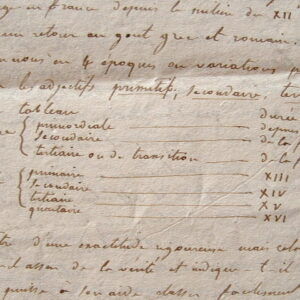 en france depuis le milieu du XII
un retour au gout grec et romain,
nous en 4 époques ou variations
les adjectifs primitif, secondaire, ter
tableau durée
primordiale depui
secondaire de la
tertiaire ou de transition de la
primaire XIII
secondaire XIV
tertiaire XV
quartaire XVI
d'une exactitude rigoureuse mais
classer de la verité et indiger t-il
puisse à son aide classer facilement